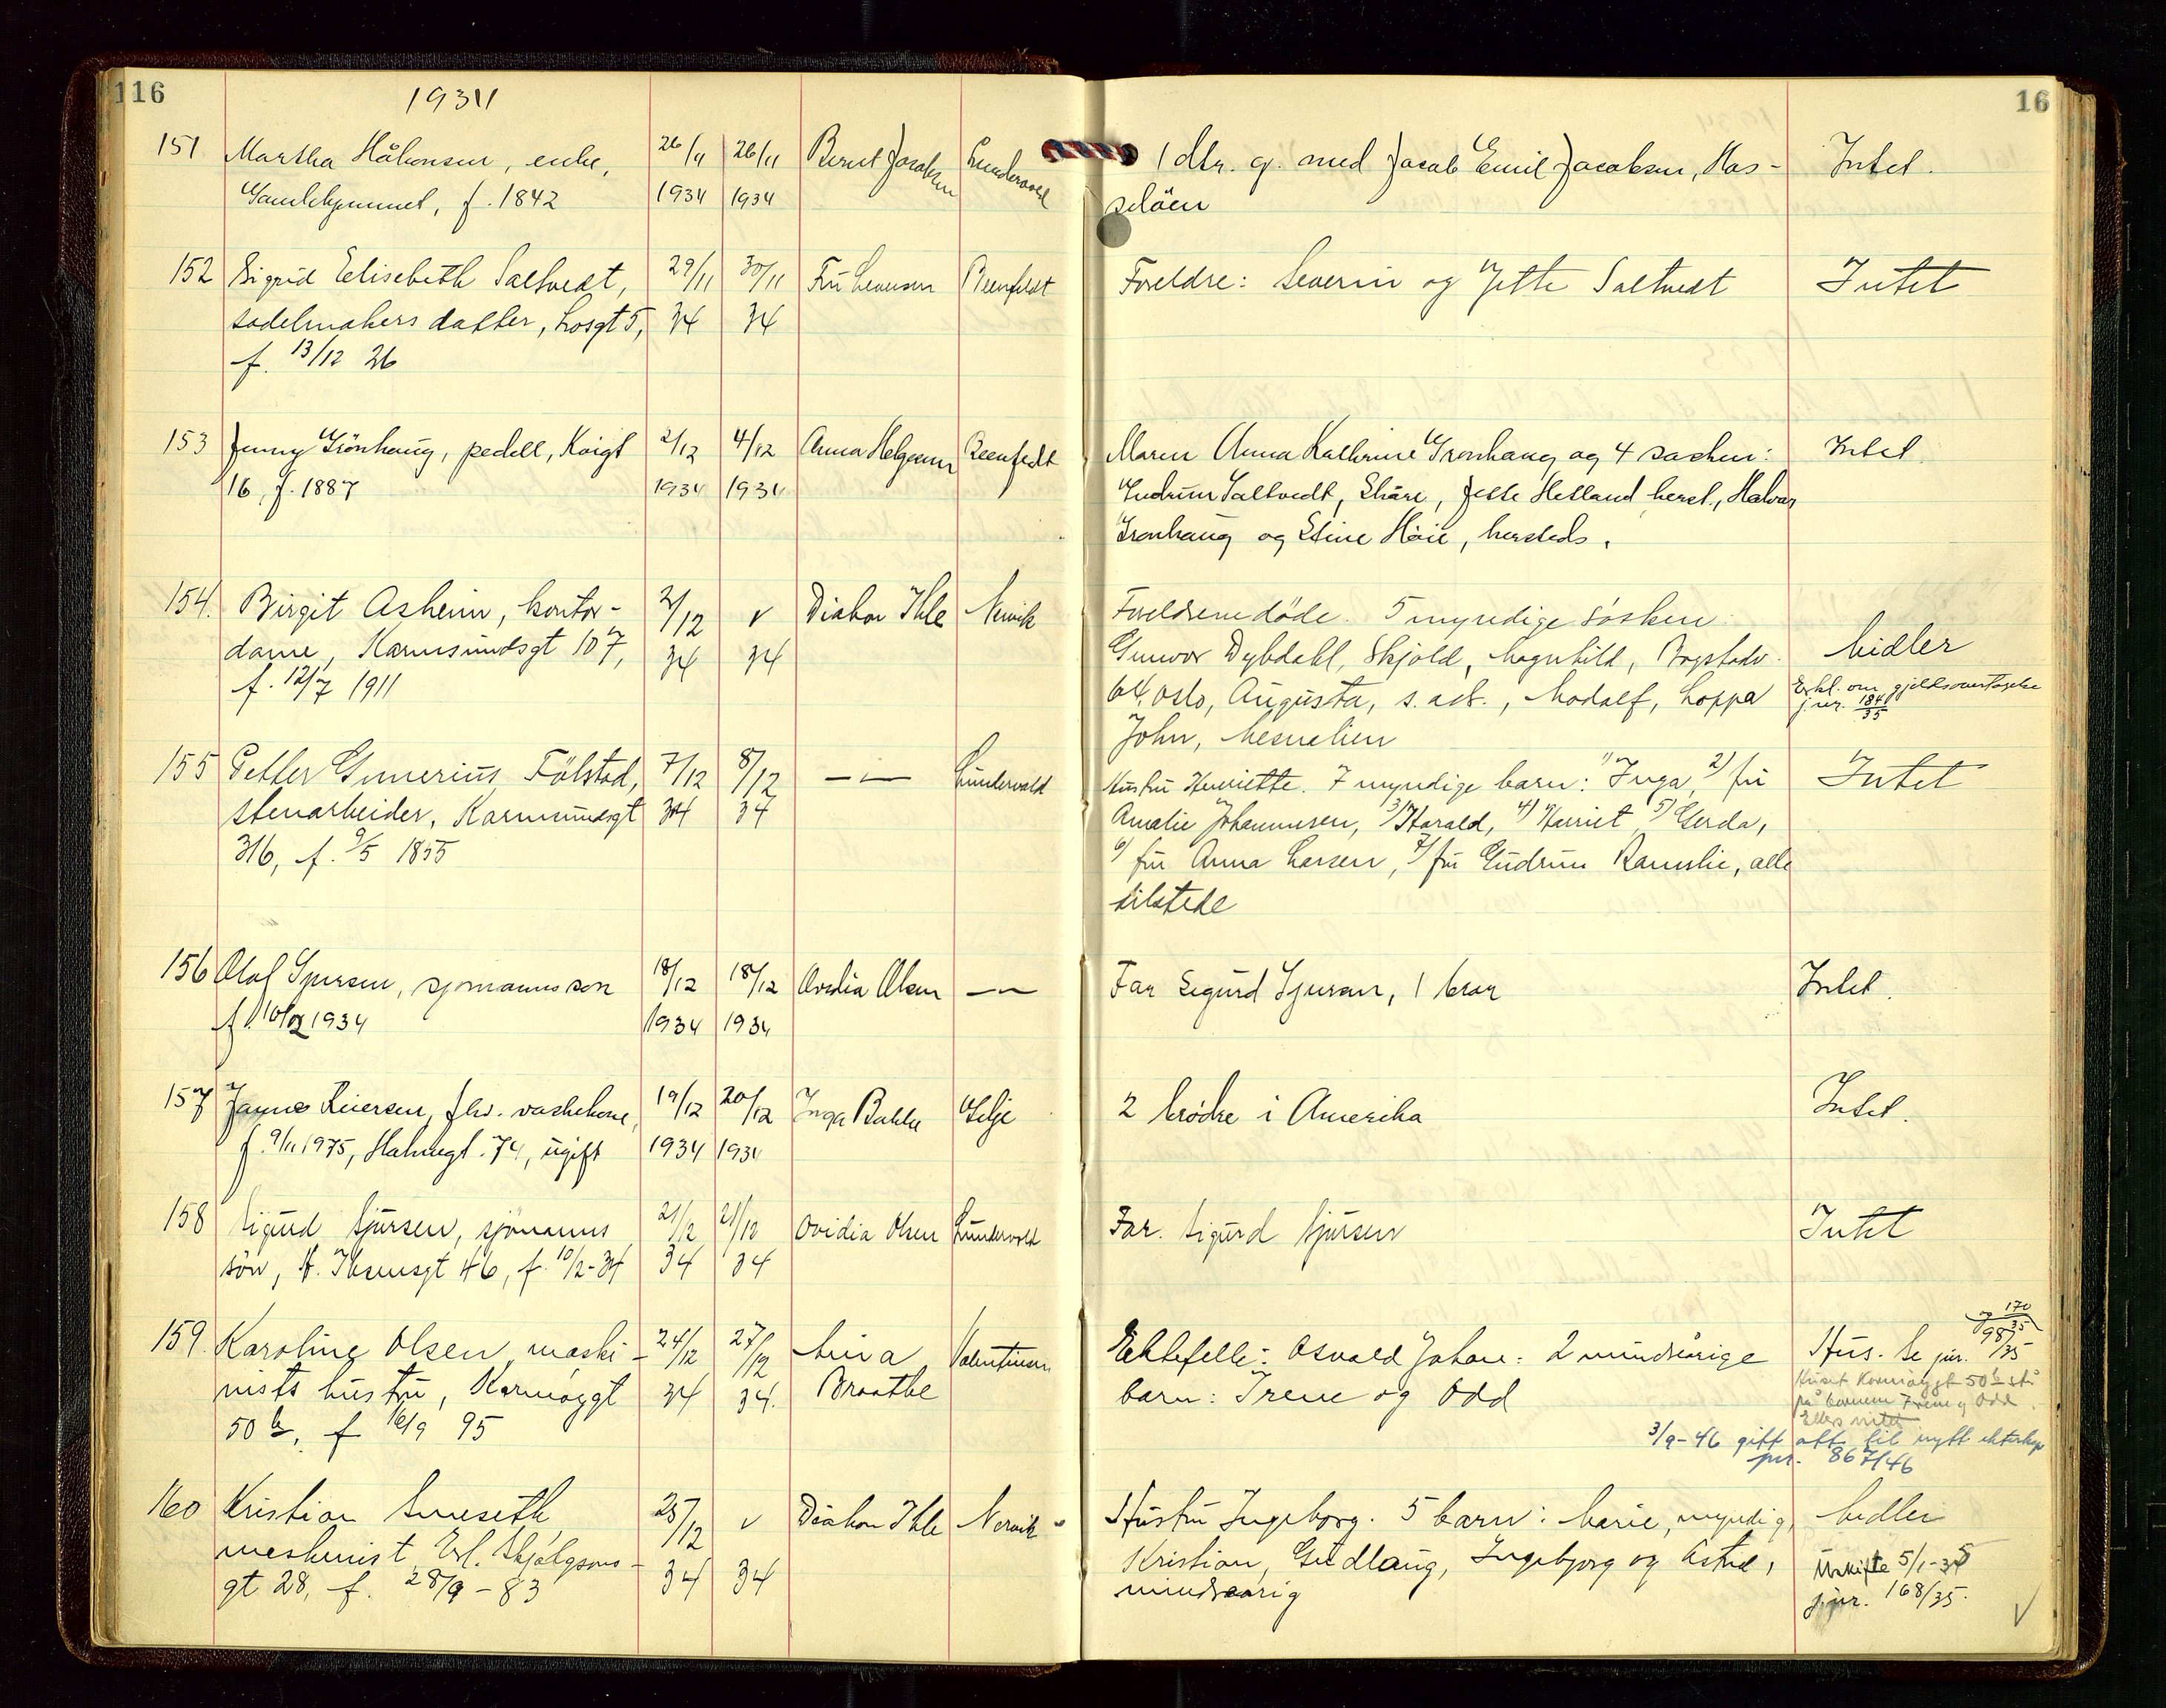 116
1934
16
151 Martha Håkonsen, enke, 26/11 26/11 Bernt Jacobsen Lundervold 1 dtr. g. med Jacob Emil Jacobsen, Has- Intet.
Gamlehjemmet, f. 1842 1934 1934 seløen
152 Sigrid Elisebeth Saltvedt, 29/11 30/11 Fru Levensen Reenfeldt Foreldre: Severin og Jette Saltvedt Intet
sadelmakers datter, Losgt 5, 34 34
f. 13/12 26
153 Jenny Grönhaug, pedell, Kaigt 2/12 4/12 Anna Helgesen Reenfeldt Maren Anna Kathrine Gronhaug og 4 søsken: Intet
16, f. 1887 1934 1934 Gudrun Saltvedt, Skåre, Jette Hetland herst., Halvor
Gronhaug og Stine Höie, hersteds.
154. Birgit Asheim, kontor- 2/12 v Diakon Ihle Nervik Foreldrene döde. 5 myndige søsken:
dame, Karmsundsgt 107, 34 34 Gunvor Dybdahl, Skjold, Magnhild, Bogstadv. Midler
f. 12/7 1911 64, Oslo, Augusta, s. ast., Modolf, Loppa Erkl. om gjeldsovertagelse
jnr. 184/35
John, Mesnalien
155 Petter Gunerius Fölstad, 7/12 8/12 —"— Lundervold Hustru Henriette. 7 myndige barn: 1) Inga, 2) fru Intet
stenarbeider, Karmsundsgt 34 34 Amalie Johannesen, 3) Harald, 4) Harriet 5) Gerda,
316, f. 9/5 1855 6) fru Anna Larsen, 7) fru Gudrun Ramslie, alle
tilstede
156 Olaf Sjursen, sjømanns søn 18/12 18/12 Ovidia Olsen —"— Far Sigurd Sjursen, 1 bror Intet.
f. 10/12 1934 1934 1934
157 Reiersen, fhv. vaskekone, 19/12 20/12 Inga Bakke Gilje 2 brødre i Amerika Intet.
f. 9/11 1975, 74, ugift 1934 1934
158 Sigurd Sjursen, sjömanns 21/12 21/12 Ovidia Olsen Lundervold Far. Sigurd Sjursen Intet
sön, H. Ibsensgt 46, f. 10/2-34 34 34
og 170/35
159. Karoline Olsen maski- 24/12 27/12 Lina Valentinsen Ektefelle: Osvald Johan. 2 mindreårige Hus. Se jnr. 98/35
nists hustru, Karmöygt 34 34. Braathe barn: Irene og Odd Huset Karmöygt 50b står
50b, f 16/9 95 på barnene Irene og Odd.
Ellers intet
3/9-46 gift att til nytt ekteskap
jnr. 867/46
160 Kristian Smeseth 25/12 v Diakon Ihle Nervik Hustru Ingeborg. 5 barn: Marie, myndig, Midler
maskinist Erl. Skjalgsons- 34 34 Kristian, Gudlaug, Ingebjorg og Astrid, Uskifte 5/1-35
gt 28, f. 28/9-83 mindreårig jnr. 168/35. V